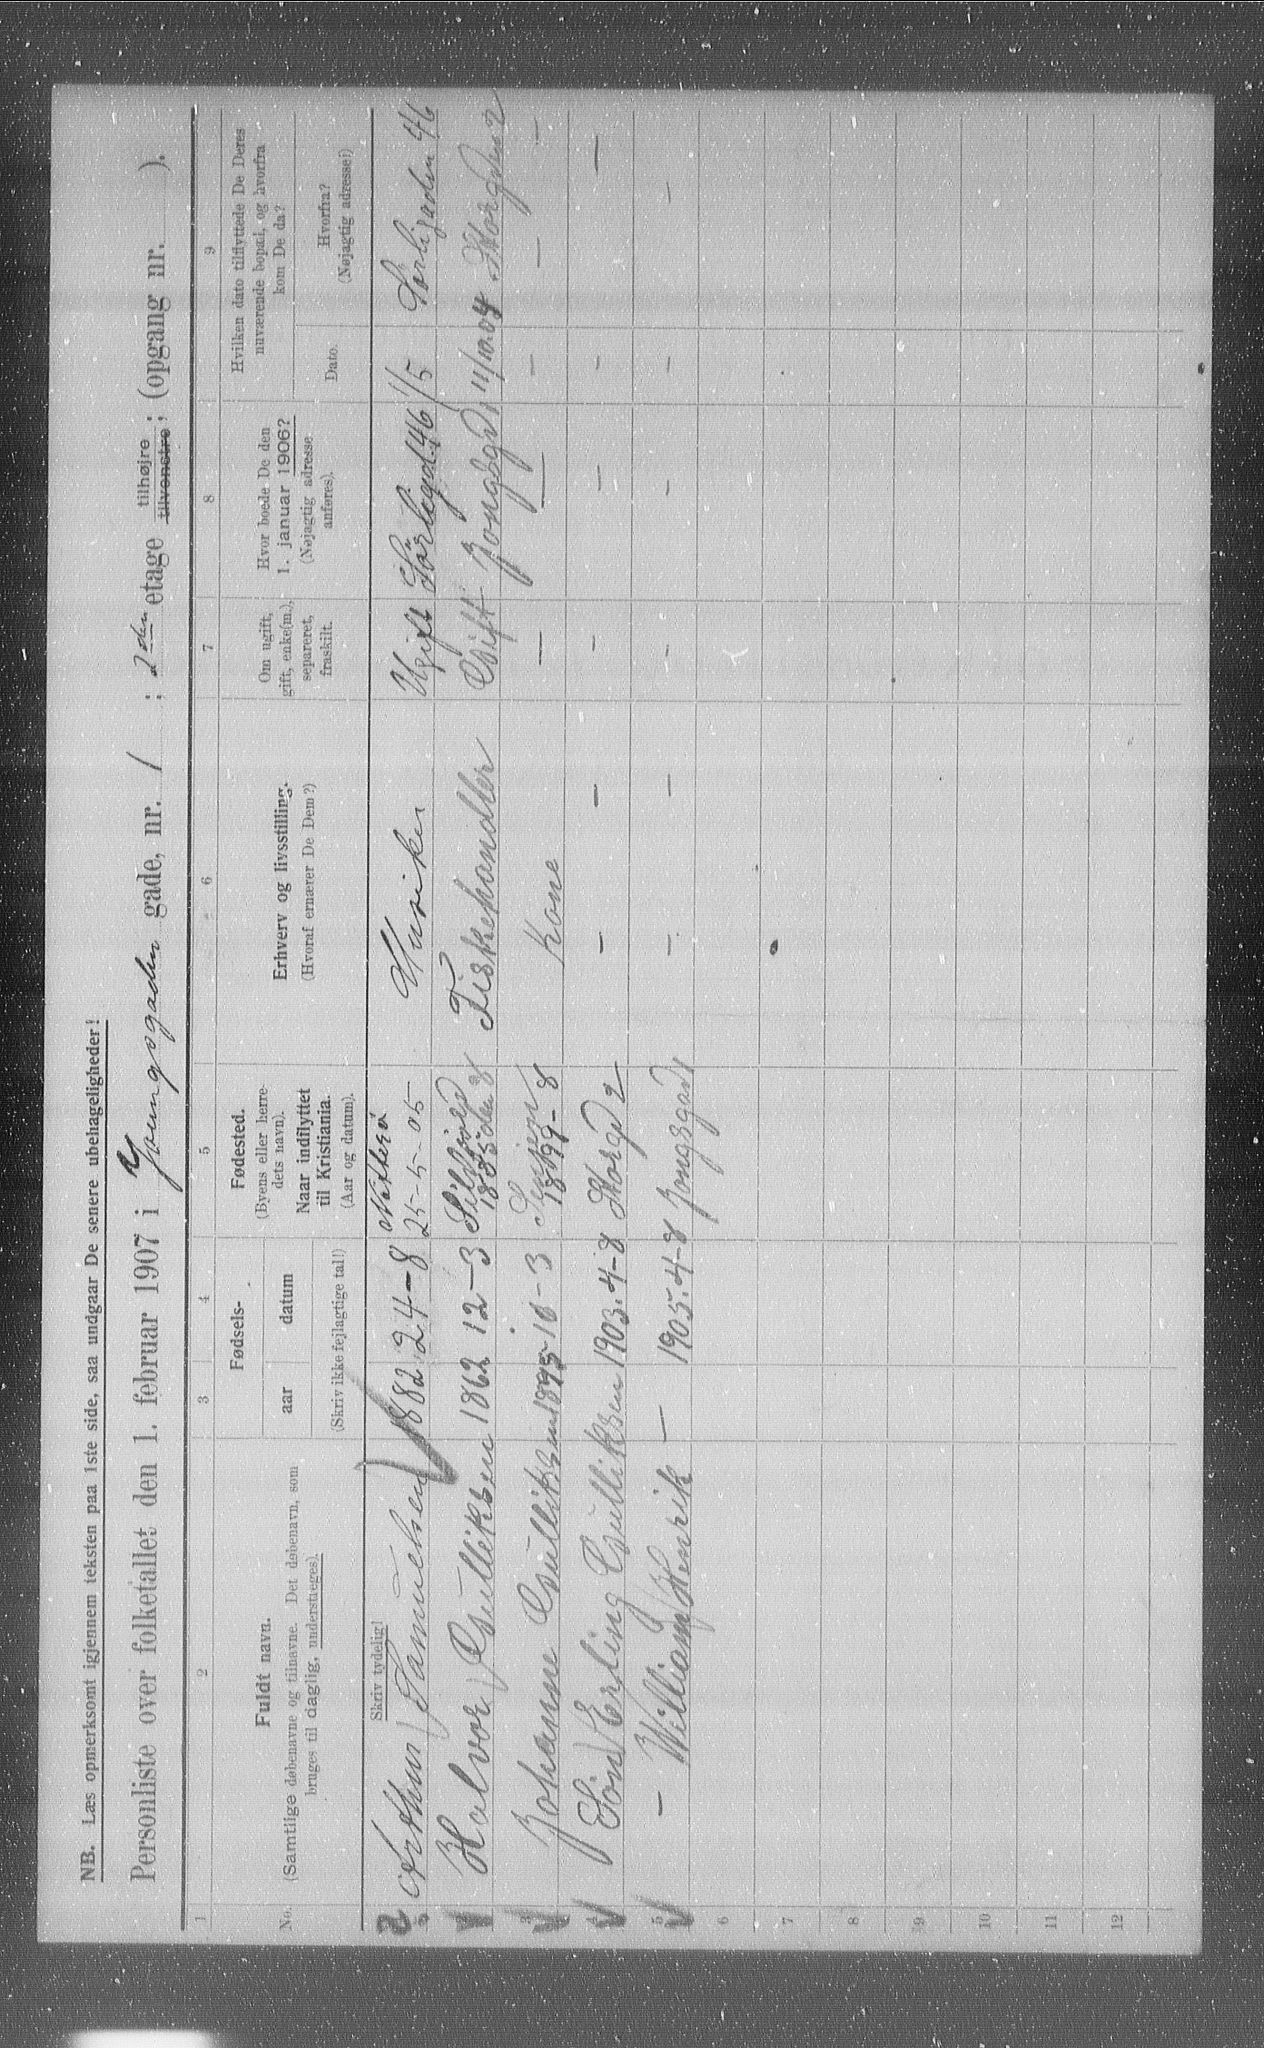 NB. Læs opmerksomt igjennem teksten paa 1ste side, saa undgaar De senere ubehageligheder!
Personliste over folketallet den 1. februar 1907 i Youngsgaden gade, nr. 1 ; 2den etage tilhøjre tilvenstre; (opgang nr. ).
1 2 3 4 5 6 7 8 9
No.
Fuldt navn.
(Samtlige døbenavne og tilnavne. Det døbenavn, som
bruges til daglig, understreges).
Fødsels-
aar datum
(Skriv ikke fejlagtige tal!)
Fødested.
(Byens eller herre-
dets navn).
Naar indflyttet
til Kristiania.
(Aar og datum).
Erhverv og livsstilling.
(Hvoraf ernærer De Dem?)
Om ugift,
gift, enke(m.),
separeret,
fraskilt.
Hvor boede De den
1. januar 1906?
(Nøjagtig adresse
anføres).
Hvilken dato tilflyttede De Deres
nuværende bopæl, og hvorfra
kom De da?
Dato.
Hvorfra?
(Nøjagtig adresse!)
Skriv tydelig!
Arthur Samuelsen 1882 24-8 Nøtterø 25-5-05 Musiker Ugift Sørligd. 46 1/5 Sørligaden 46
2 Halvor Gulliksen 1862 12-3 1885 den 8 Fiskehandler Gift Jongsgd 1 11/10.04 Storgaden 2
3 Johanne Gulliksen 10-3 8 Kone — — — — —
4 Søn Erling Gulliksen 1903. 4-8 Storgd 2 — — — — — —
5 — William Henrik — 1905. 4-8 Jongsgad 1 — — — — — —
6
7
8
9
10
11
12